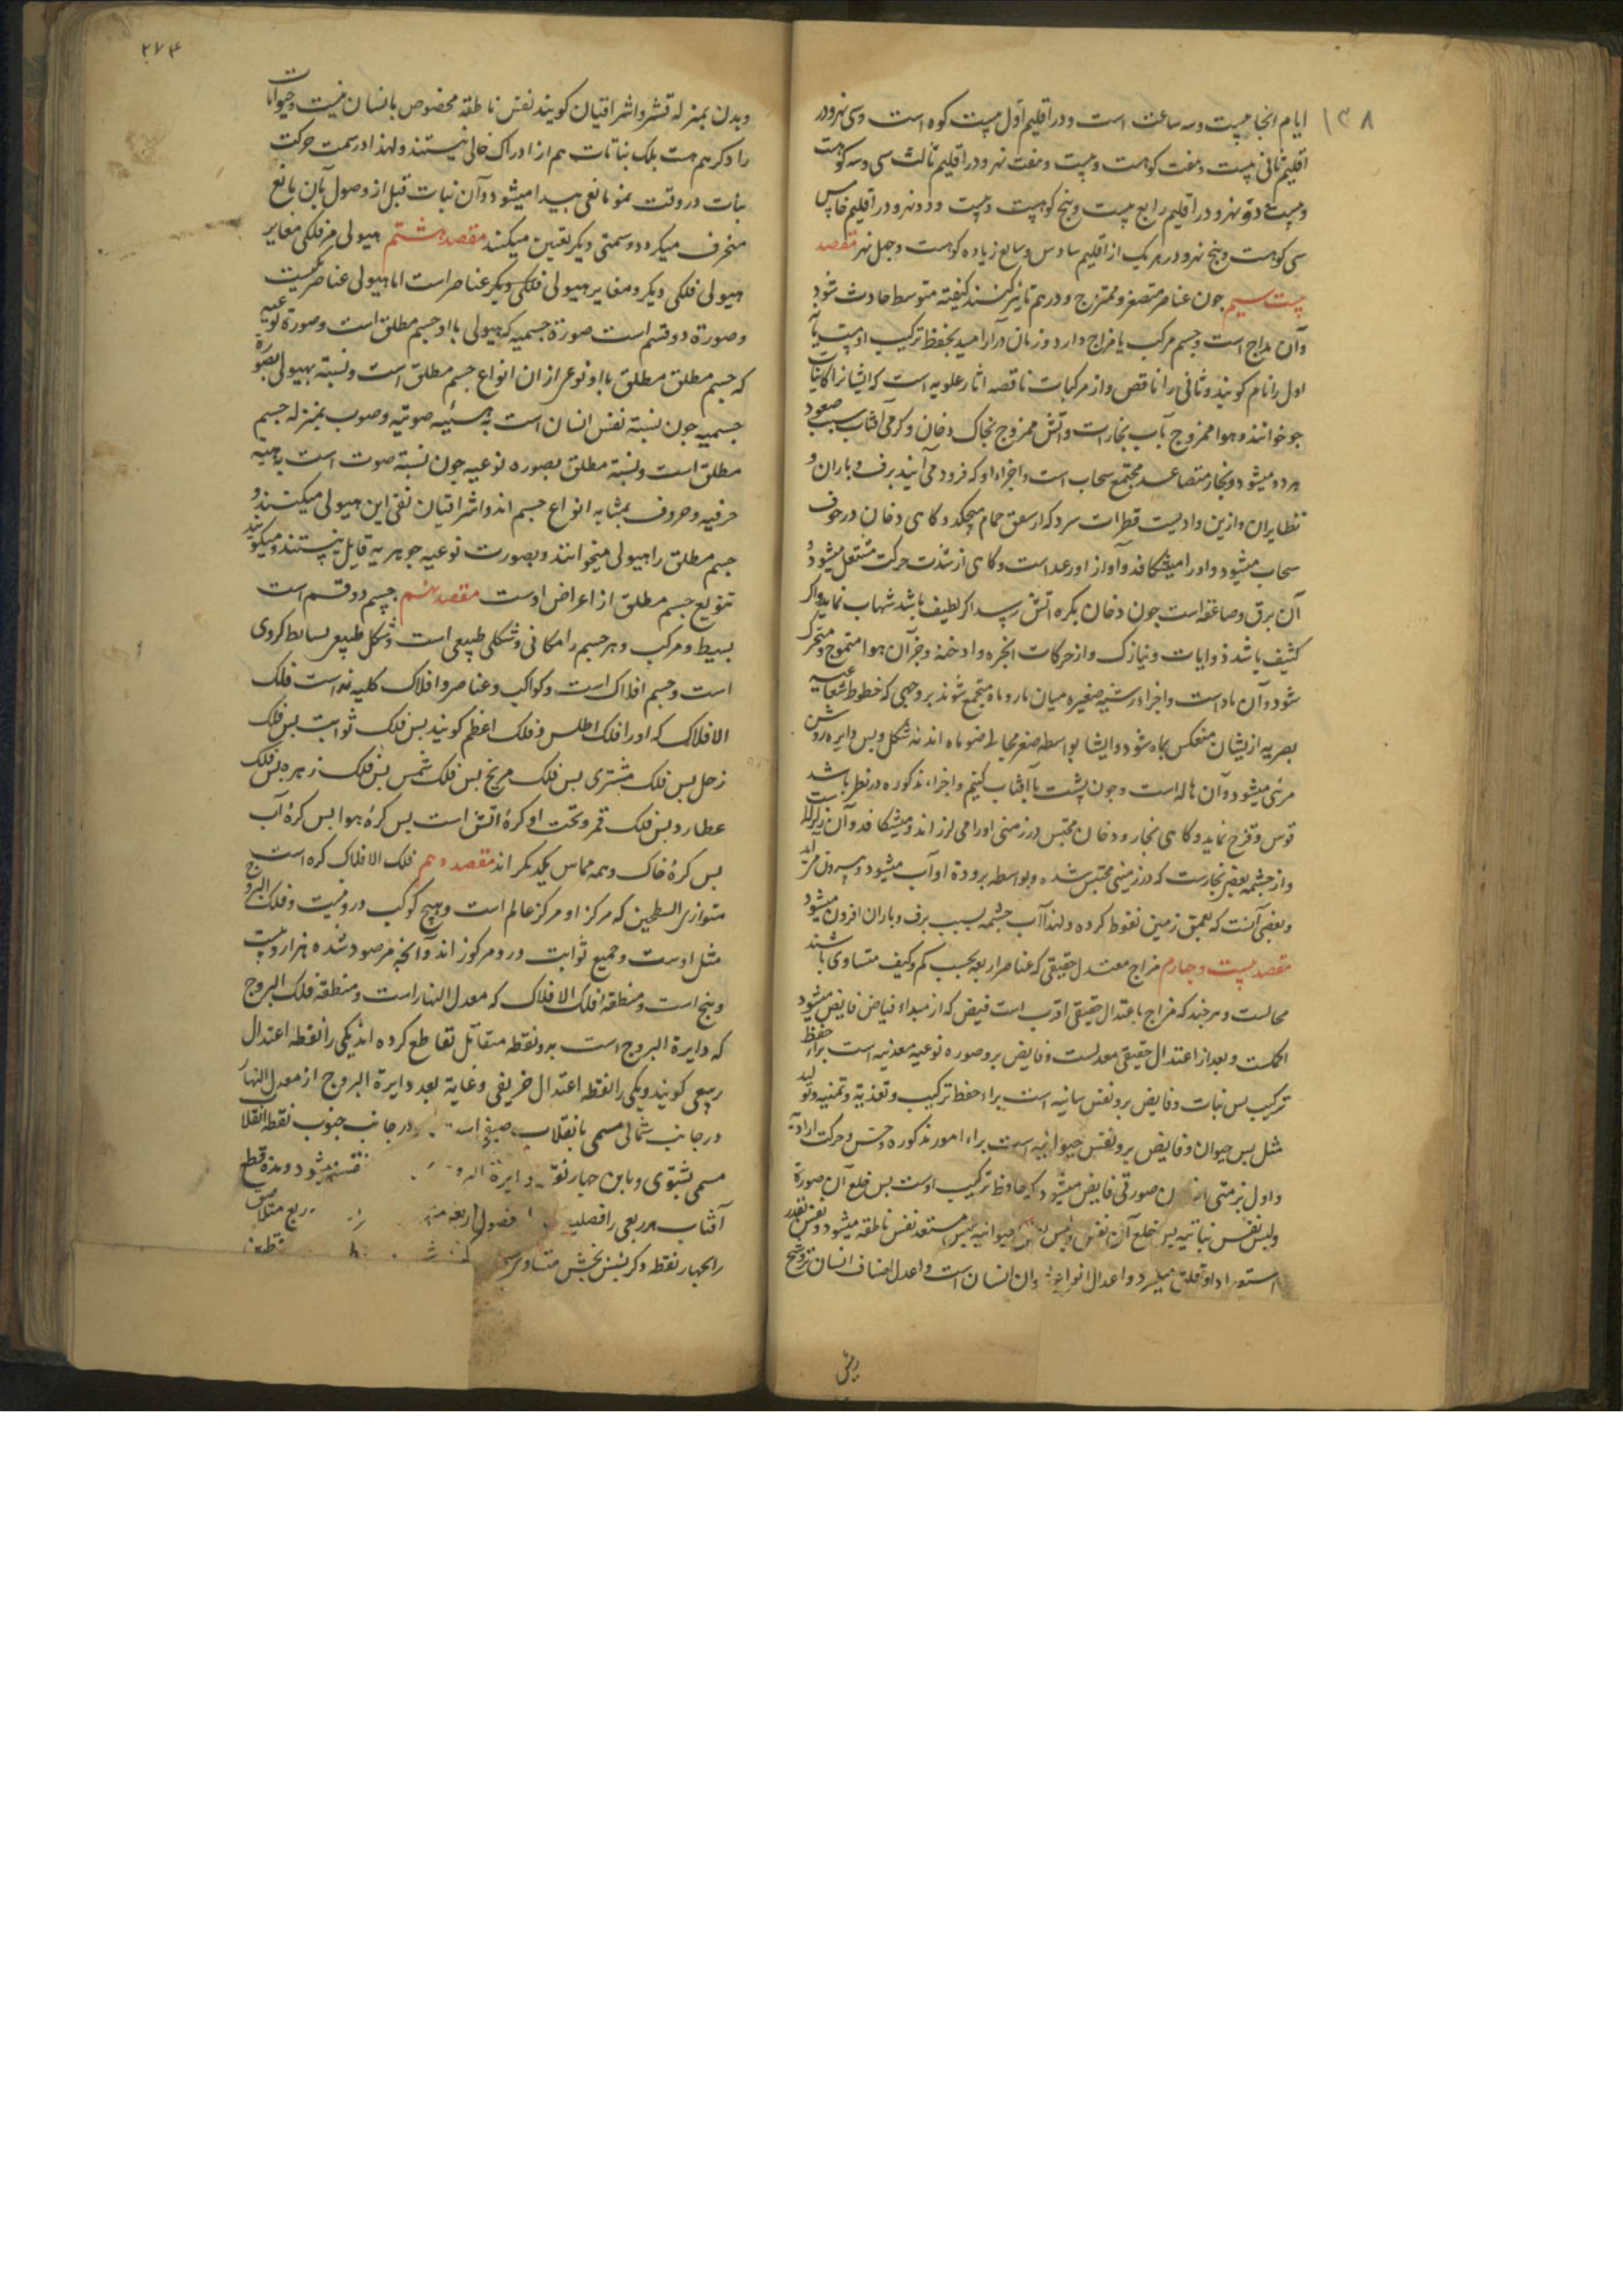 ۱۳۸
ایام انجا بیست وسه ساعت است و در اقلیم اول بیست کوه است و سی نهر و در
اقلیم ثانی بیست و هفت کوهست و بیست و هفت نهر و در اقلیم ثالث سی و سه کوهست
و بیست و دو نهر و در اقلیم رابع بیست و پنج کوهست و بیست و دو نهر و در اقلیم خامس
سی کوهست و پنج نهر و در هر یک از اقلیم سادس و سابع زیاده کوهست و چهل نهر مقصد
بیست سیم چون عناصر متصغر و ممتزج و در هم تاثیر کنند کیفیته متوسط حادث شود
وآن مزاج است و جسم مرکب با مزاج دارد و زمان دراز امید بحفظ ترکیب او هست یا
اول را تام کویند و ثانی را ناقص و از مرکبات ناقصه اثار علویه است که ایشانرا کاینات
جو خوانند و هوا ممزوج بآب بخار است و اتش ممزوج بخاک دخان و کرمی آفتاب سبب صعود
هر دو میشود و بخار متصاعد مجتمع سحاب است و اجزاء او که فرود می آیند برف و باران و
نظایر آن و ازین وادیست قطرات سرد که از سقف حمام میچکد و کاهی دخان در جوف
سحاب میشود و اورا میشکافد و آواز او رعد است و کاهی از شدت حرکت مشتعل میشود و
آن برق و صاعقه است چون دخان بکره اتش رسد اکر لطیف باشد شهاب نماید و اکر
کثیف باشد ذوایات و نیازک و از حرکات ابخره و ادخنه و جز آن هوا متموج و متحرک
شود و آن باد است و اجزاء رشیه صغیره میان ما و ماه مجتمع شوند بر وجهی که خطوط شعاعیه
بصریه ازیشان منعکس بماه شود و ایشا بواسطه صغر محالی ضو ماه اند نه شکل و پس دایره روشن
مرئی میشود و آن هاله است و چون پشت با آفتاب کنیم و اجزاء مذکوره در نظر باشد
قوس و قزح نماید و کاهی بخار و دخان محتبس در زمین اورا می لرزاند و میشکافد و آن زلزله است
و از چشمه بعضی بخارست که در زمین محتبس شده و بواسطه برودة او آب میشود و بیرون می آید
و بعضی آنست که بعمق زمین نفوط کرده و لهذا آب چشمه بسبب برف و باران افزون میشود
مقصد بیست و چهارم مزاج معتدل حقیقی که عناصر اربعه بحسب کم و کیف متساوی باشند
محالست و هر چند که مزاج باعتدال حقیقی اقرب است فیض که از مبداء فیاض فایض میشود
اکملست و بعد از اعتدال حقیقی معدلست و فایض برو صوره نوعیه معدنیه است براء حفظ
ترکیب پس نبات و فایض برو نفس نباتیه است براء حفظ ترکیب و تغذیه و تنمیه و تولید
مثل پس حیوان و فایض برو نفس حیوانیه است براء امور مذکوره و حس و حرکت ارادیه
و اول بر منی انسان صورتی فایض میشود که حافظ ترکیب اوست پس خلع آن صورة
ولبس نفس نباتیه پس خلع آن نفس ولبس نفس حیوانیه پس مستعد نفس ناطقه میشود و نفس بقدر
استعداد او تعلق میکیرد و اعدل انواع حیوان انسان است و اعدل اصناف انسان نزد شیخ
رئیس
۲۷۴
وبدن بمنزله قشر و اشراقیان کویند نفس ناطقه مخصوص بانسان نیست و حیوانات
را دکر هم هست بلک نباتات هم از ادراک خالی نیستند و لهذا در سمت حرکت
نبات در وقت نمو مانعی پیدا میشود و آن نبات قبل از وصول بآن مانع
منحرف میکردد و سمتی دیکر تعین میکند مقصد هشتم هیولی هر فلکی مغایر
هیولی فلکی دیکر و مغایر هیولی فلکی دیکر عناصر است اما هیولی عناصر یکیست
و صورة دو قسم است صورة جسمیه که هیولی با او جسم مطلق است و صورة نوعیه
که جسم مطلق مطلق با او نوعی از ان انواع جسم مطلق است و نسبته بهیولی بصورة
جسمیه چون نسبته نفس انسان است بهیئه صوتیه و صوب بمنزله جسم
مطلق است و نسبته مطلق بصوره نوعیه چون نسبته صوت است بهیئه
حرفیه و حروف بمثابه انواع جسم اند و اشراقیان نفی این هیولی میکنند و
جسم مطلق را هیولی میخوانند و بصورت نوعیه جوهریه قایل نیستند و میکویند
تنویع جسم مطلق از اعراض اوست مقصد نهم جسم دو قسم است
بسیط و مرکب و هر جسم را مکانی و شکلی طبیعی است و شکل طبیعی بسایط کروی
است و جسم افلاک است و کواکب و عناصر و افلاک کلیه نه است فلک
الافلاک که اورا فلک اطلس و فلک اعظم کویند پس فلک ثوابت پس فلک
زحل پس فلک مشتری پس فلک مریخ پس فلک شمس پس فلک زهره پس فلک
عطارد پس فلک قمر و تحت او کرهٔ اتش است پس کرهٔ هوا پس کرهٔ آب
پس کرهٔ خاک و همه مماس یکدیکر اند مقصد دهم فلک الافلاک کره است
متوازی السطحین که مرکز او مرکز عالم است و هیچ کوکب درو نیست و فلک البروج
مثل اوست و جمیع ثوابت درو مرکوز اند و آنچه مرصود شده هزار و بیست
و پنج است و منطقه فلک الافلاک که معدل النهار است و منطقه فلک البروج
که دایرة البروج است بدو نقطه متقابل تقاطع کرده اند یکی را نقطه اعتدال
ربیعی کویند و یکی را نقطه اعتدال خریفی و غایة بعد دایرة البروج از معدل النهار
در جانب شمالی مسمی بانقلاب صیفی است و در جانب جنوب نقطه انقلاب
مسمی بشتوی و باین چهار نقطه دایرة میشود و مدة قطع
آفتاب هر ربعی را فصلیست فصول اربعه ربع متلاصق
را بچهار نقطه دکر بسن بخش متساوی